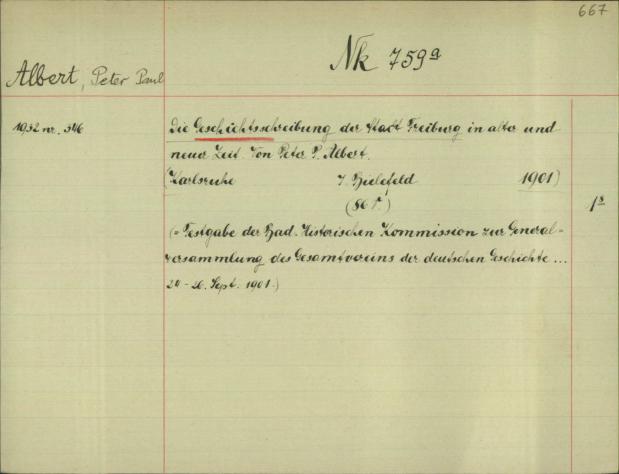 667
Nk 759a
Albert, Peter Paul
1932 nr. 546
Die Geschichtsschreibung der Stadt Freiburg in alter und
neuer Zeit. Von Peter P. Albert.
(Karlsruhe J. Bielefeld 1901)
(56 S.)
1 8
(= Festgabe der Bad. Historischen Kommission zur General=
versammlung des Gesamtvereins der deutschen Geschichte...
24-26. Sept. 1901.)